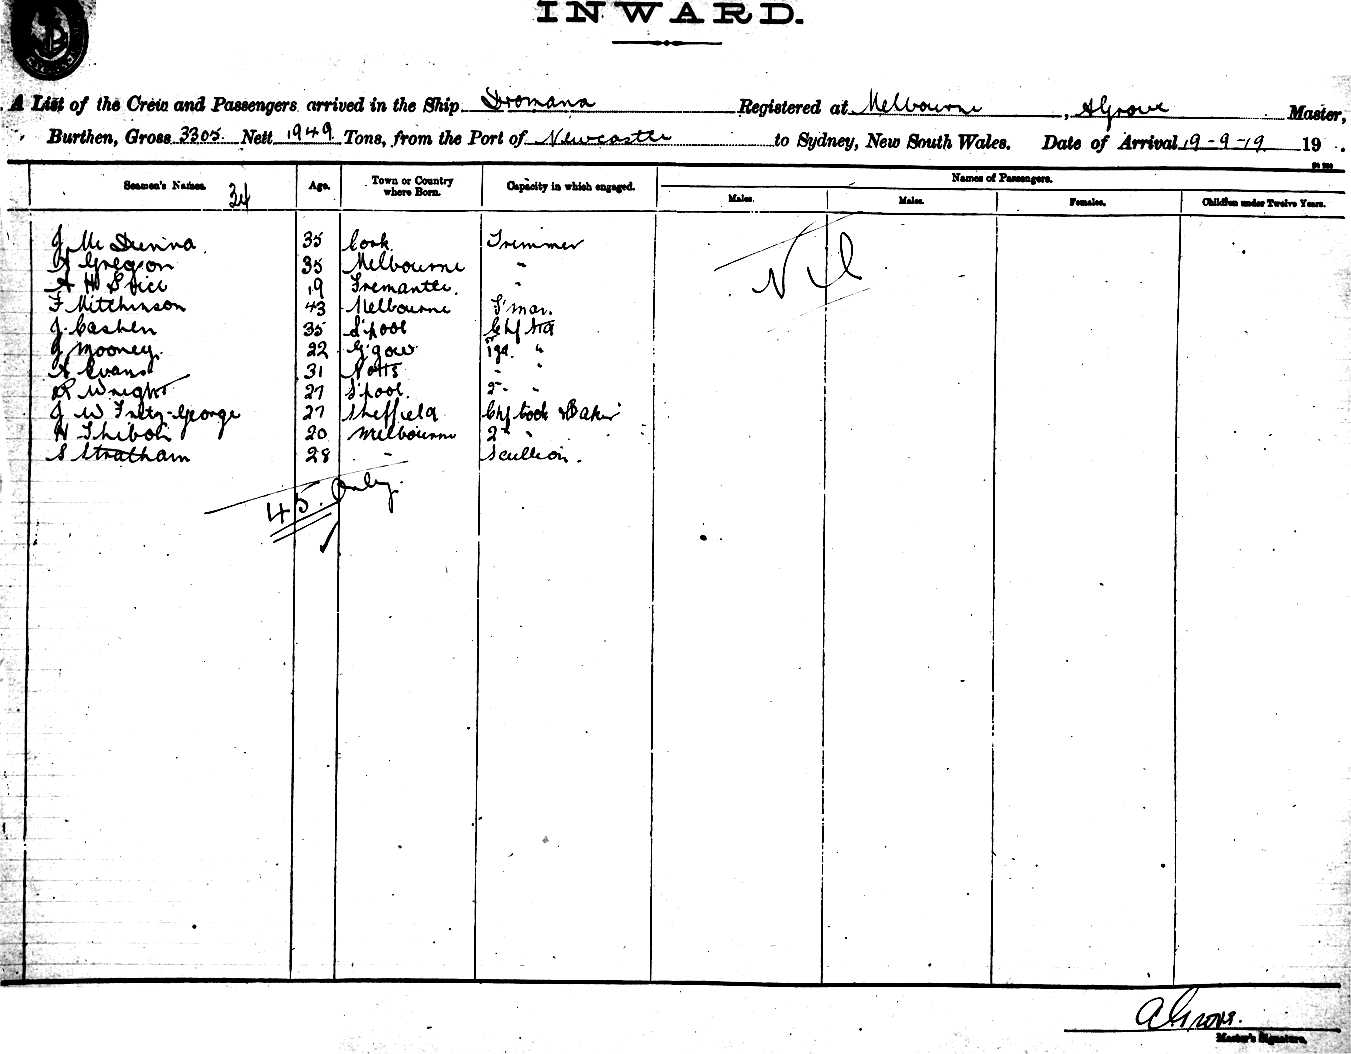 INWARD.
A List of the Crew and Passengers arrived in the Ship Dromana Registered at Melbourne, A Grove Master,
Burthen, Gross 3305 Nett 1949 Tons, from the Port of Newcastle to Sydney, New South Wales. Date of Arrival 19-9-19 19 .
Seamen's Names. 34 Age. Town or Country where Born. Capacity in which engaged. Names of Passengers.
Males. Males. Females. Children under Twelve Years.
J Mc 35 Cork Trimmer
Gregson 35 Melbourne "
A H Spice 19 Fremantle. "
F Mitchinson 43 Melbourne F'man.
J. Cashen 35 L'pool Chf Std
J Mooney. 22 G'gow "
A Evans 31 Notts " "
R Wright 27 L'pool. 2" "
J W George 27 Sheffield Chf Cook & Baker
H 20 Melbourne 2nd "
S Stratham 28 " Scullion.
Nil
45. Only.
A Grove.
Master's Signature.